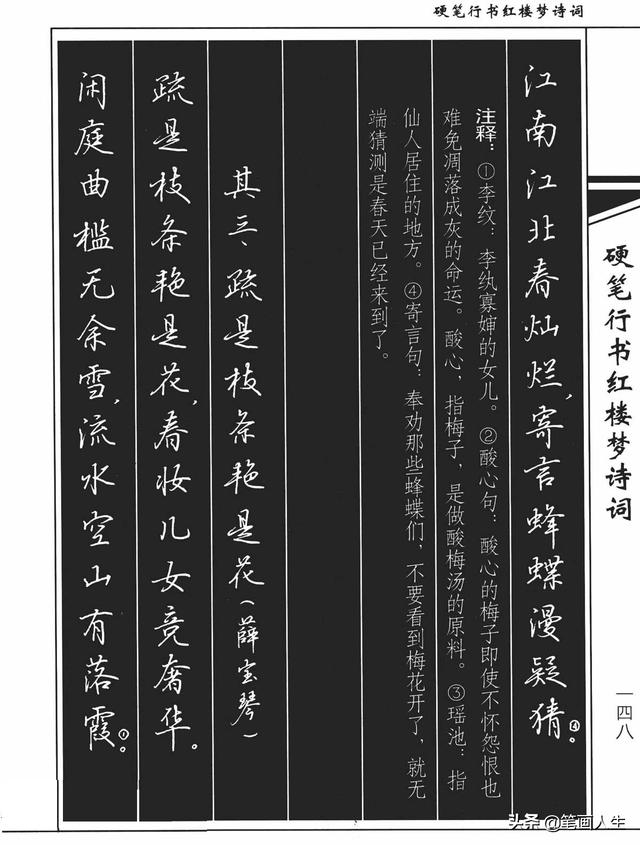 硬笔行书红楼梦诗词
江南江北春灿烂，寄言蜂蝶漫疑猜④。
注释：①李纹：李纨寡婶的女儿。②酸心句：酸心的梅子即使不怀怨恨也
难免凋落成灰的命运。酸心，指梅子，是做酸梅汤的原料。③瑶池：指
仙人居住的地方。④寄言句：奉劝那些蜂蝶们，不要看到梅花开了，就无
端猜测是春天已经来到了。
其三、疏是枝条艳是花（薛宝琴）
疏是枝条艳是花，春妆儿女竞奢华。
闲庭曲槛无余雪，流水空山有落霞①。
硬笔行书红楼梦诗词
一四八
头条@笔画人生